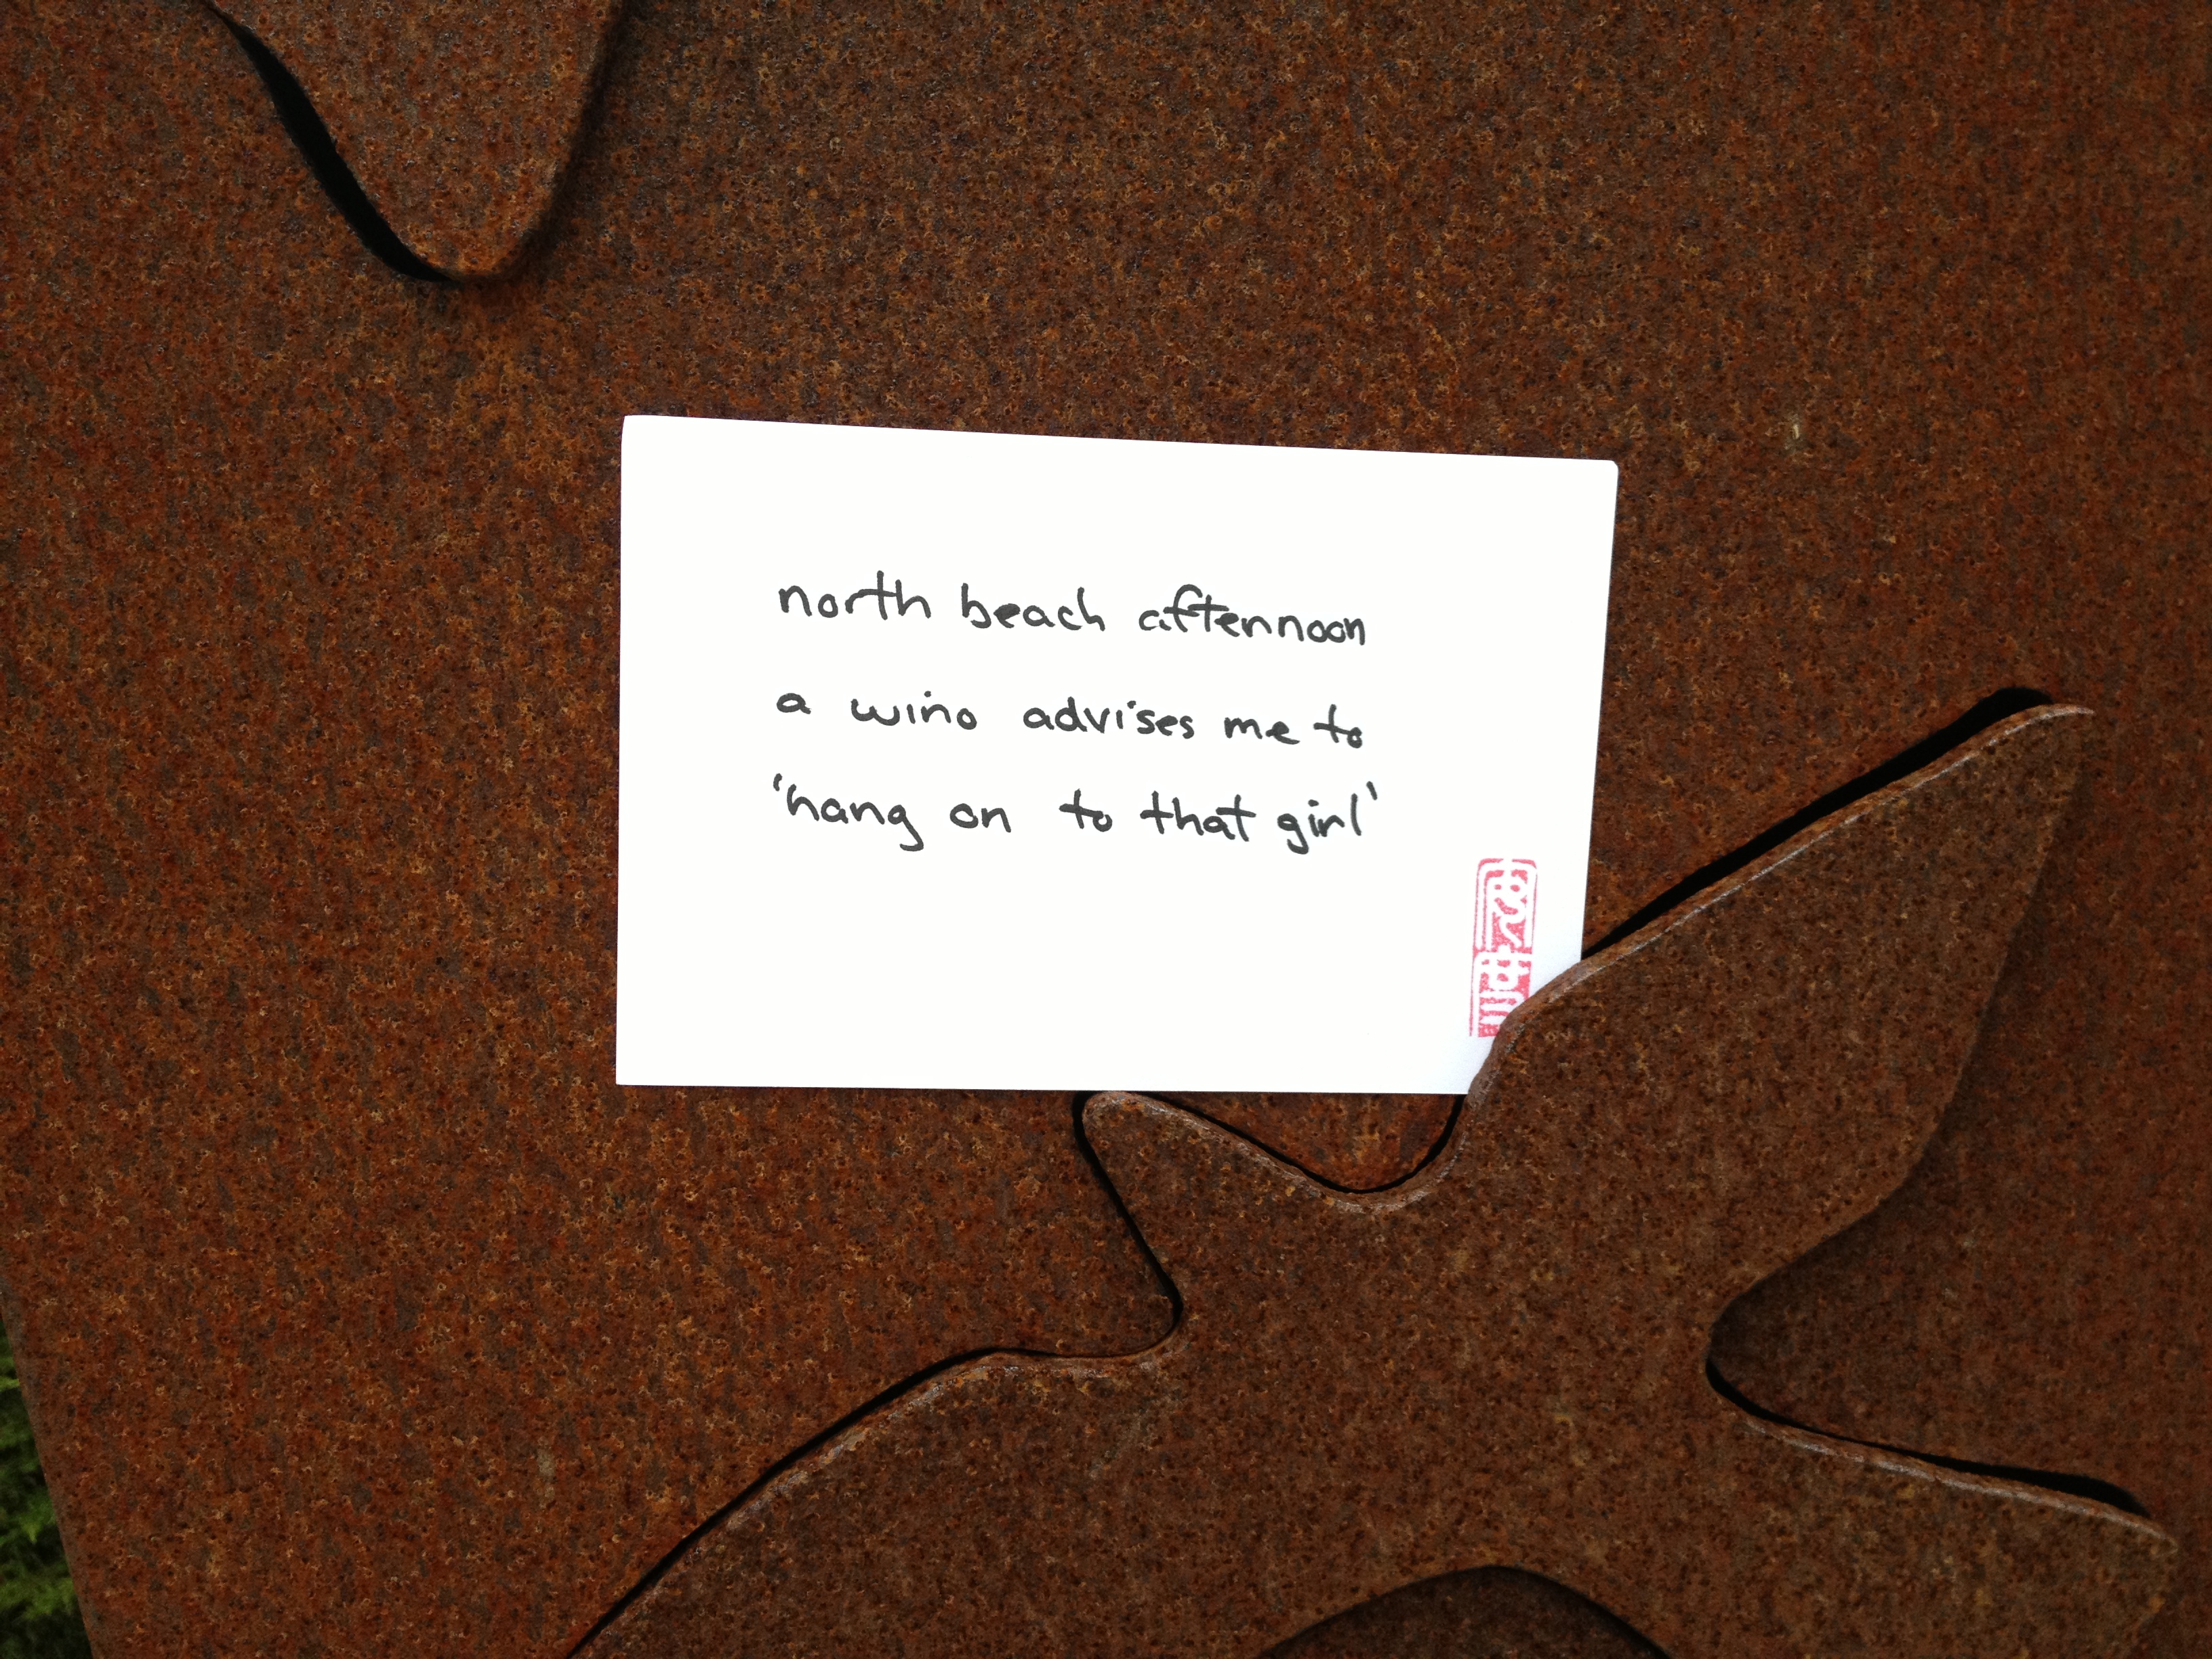 north beach afternnoon
a wino advises me to
'hang on to that girl'